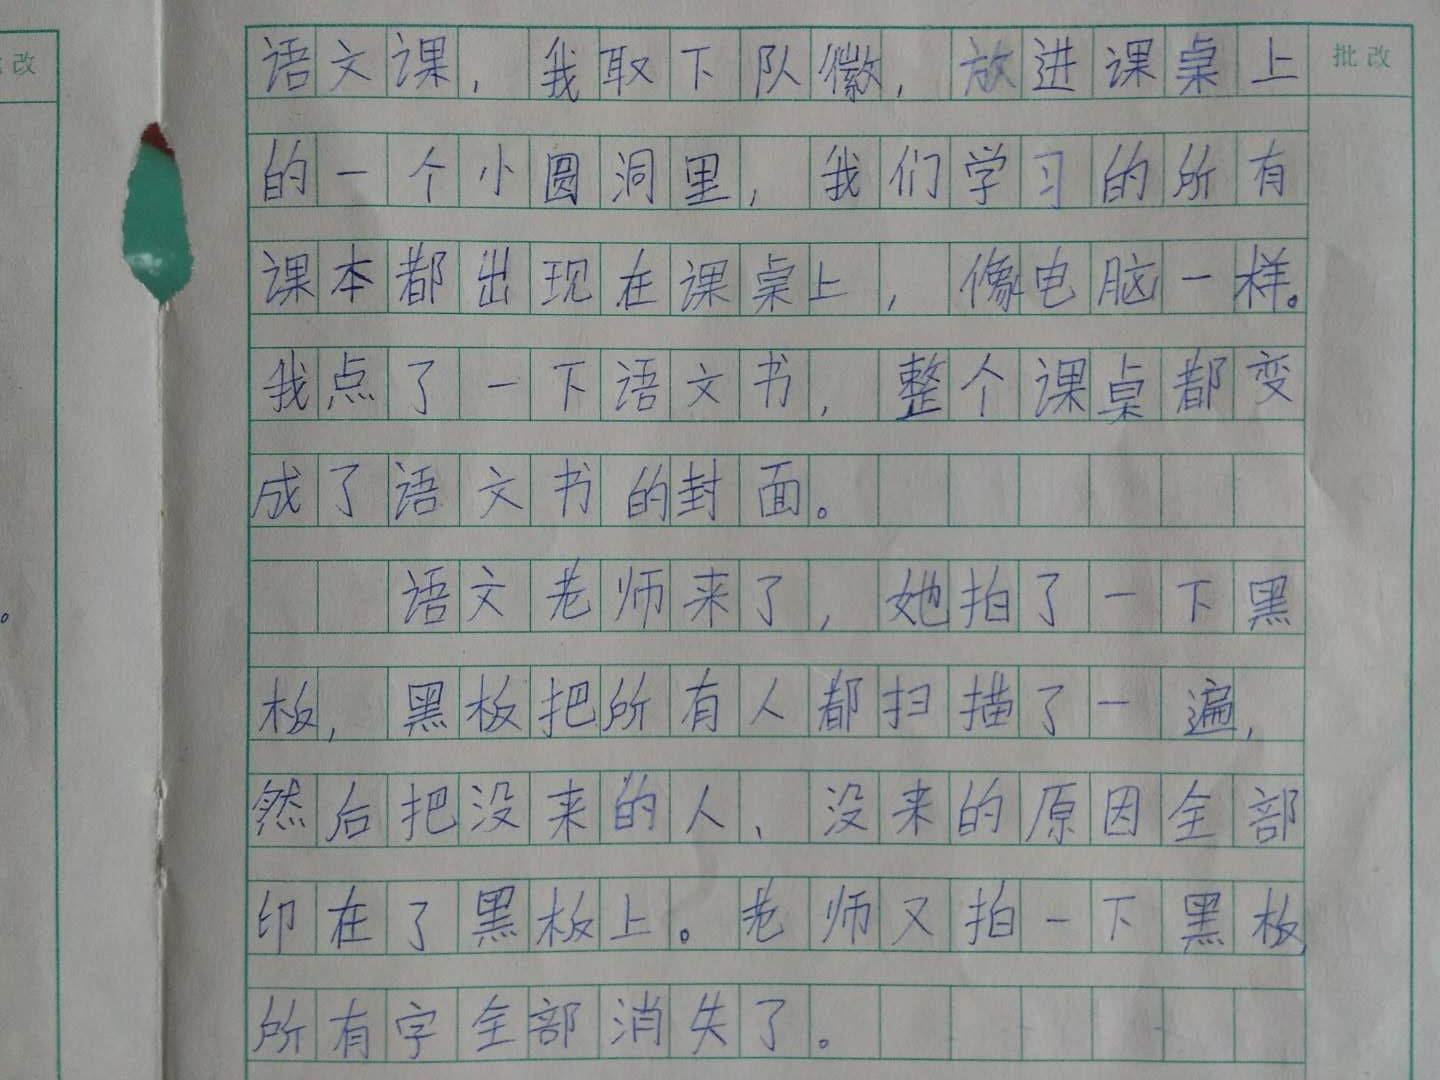 语文课，我取下队徽，放进课桌上
批改
的一个小圆洞里，我们学习的所有
课本都出现在课桌上，像电脑一样。
我点了一下语文书，整个课桌都变
成了语文书的封面。
语文老师来了，她拍了一下黑
板，黑板把所有人都扫描了一遍，
然后把没来的人、没来的原因全部
印在了黑板上。老师又拍一下黑板，
所有字全部消失了。
改
。